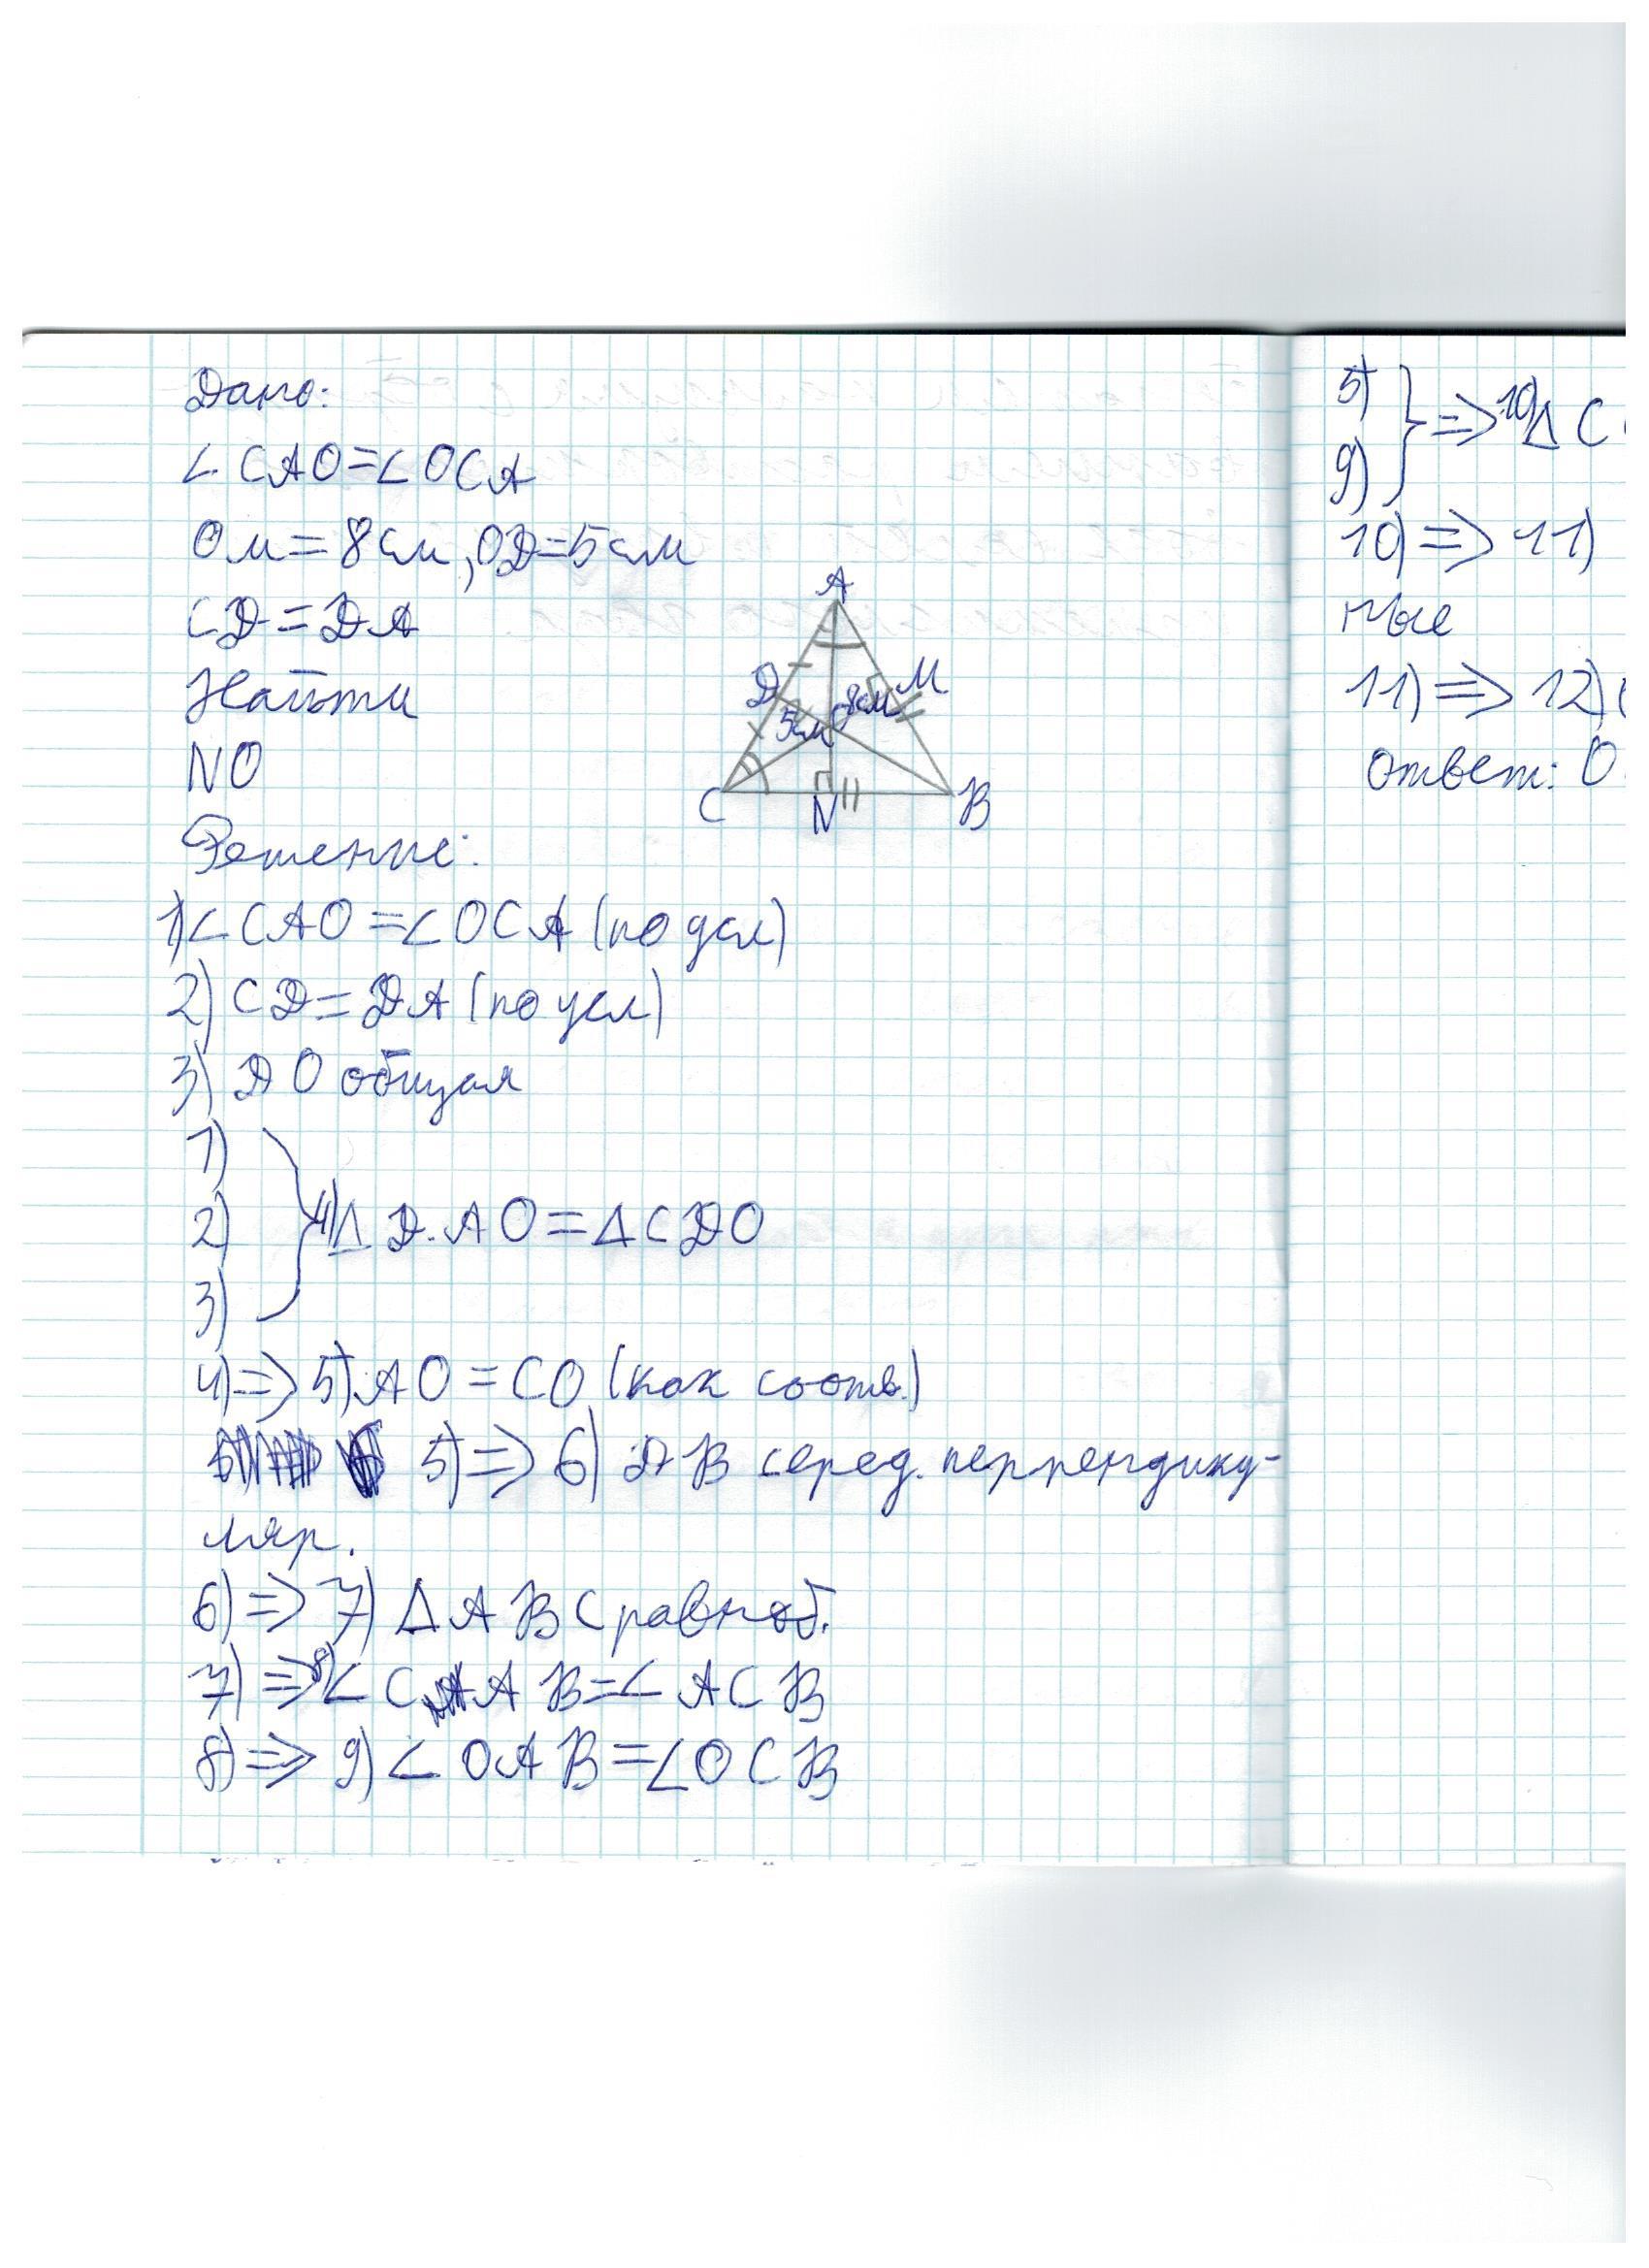 Дано:
∠CAO=∠OCA
OM=8см, OD=5см
CD=DA
Найти
NO
Решение:
1)∠CAO=∠OCA (по усл)
2) CD=DA (по усл)
3) DO общая
1)
2)
3)
4)Δ DAO=ΔCDO
4)=>5) AO=CO (как соотв.)
5)=>6) DB серед. перпендику-
ляр.
6)=>7) ΔABC равноб.
7)=>8)∠CAB=∠ACB
8)=>9)∠OAB=∠OCB
A
D
M
5см
8см
C
N
B
5)
9)
=>10)Δ C
10)=>11)
ные
11)=>12)
Ответ: O